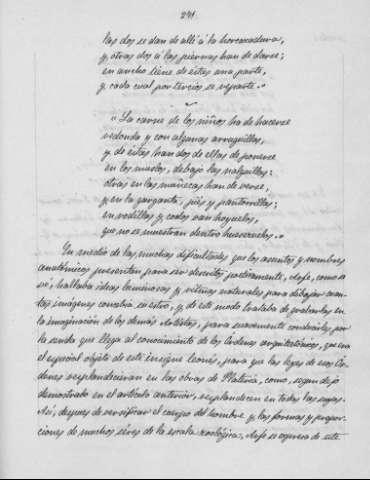 291.
las dos se dan de allí á la horcaxadura,
y otras dos á las piernas han de darse;
en ancho tiene de estas una parte,
y cada cual por tercios se reparte."
"La carne de los niños ha de hacerse
redonda y con algunas arruguillas,
y de estas han dos de ellas de ponerse
en los muslos, debajo las nalguillas;
otras en las muñecas han de verse,
y en la garganta, piés y pantorrillas;
en rodillas y codos van hoyuelos,
que no se muestran dentro huesezuelos."
En medio de las muchas dificultades que los asuntos y nombres
anatómicos presentan para ser descritos poéticamente, Arfe, como se
vé, hallaba ideas luminosas y rimas naturales para dibujar cuantas
imágenes concebía su estro, y de este modo trataba de grabarlas en
la imaginación de los demás Artistas, para suavemente conducirles por
la senda que llega al conocimiento de los órdenes arquitectónicos, que era
el especial objeto de este insigne leonés, para que las leyes de esos Órdenes
resplandecieran en las obras de Platería, como, segun dejo
demostrado en el artículo anterior, resplandecen en todas las suyas.
Así, despues de versificar el cuerpo del hombre y las formas y proporciones
de muchos séres de la escala zoológica, Arfe se expresa de este